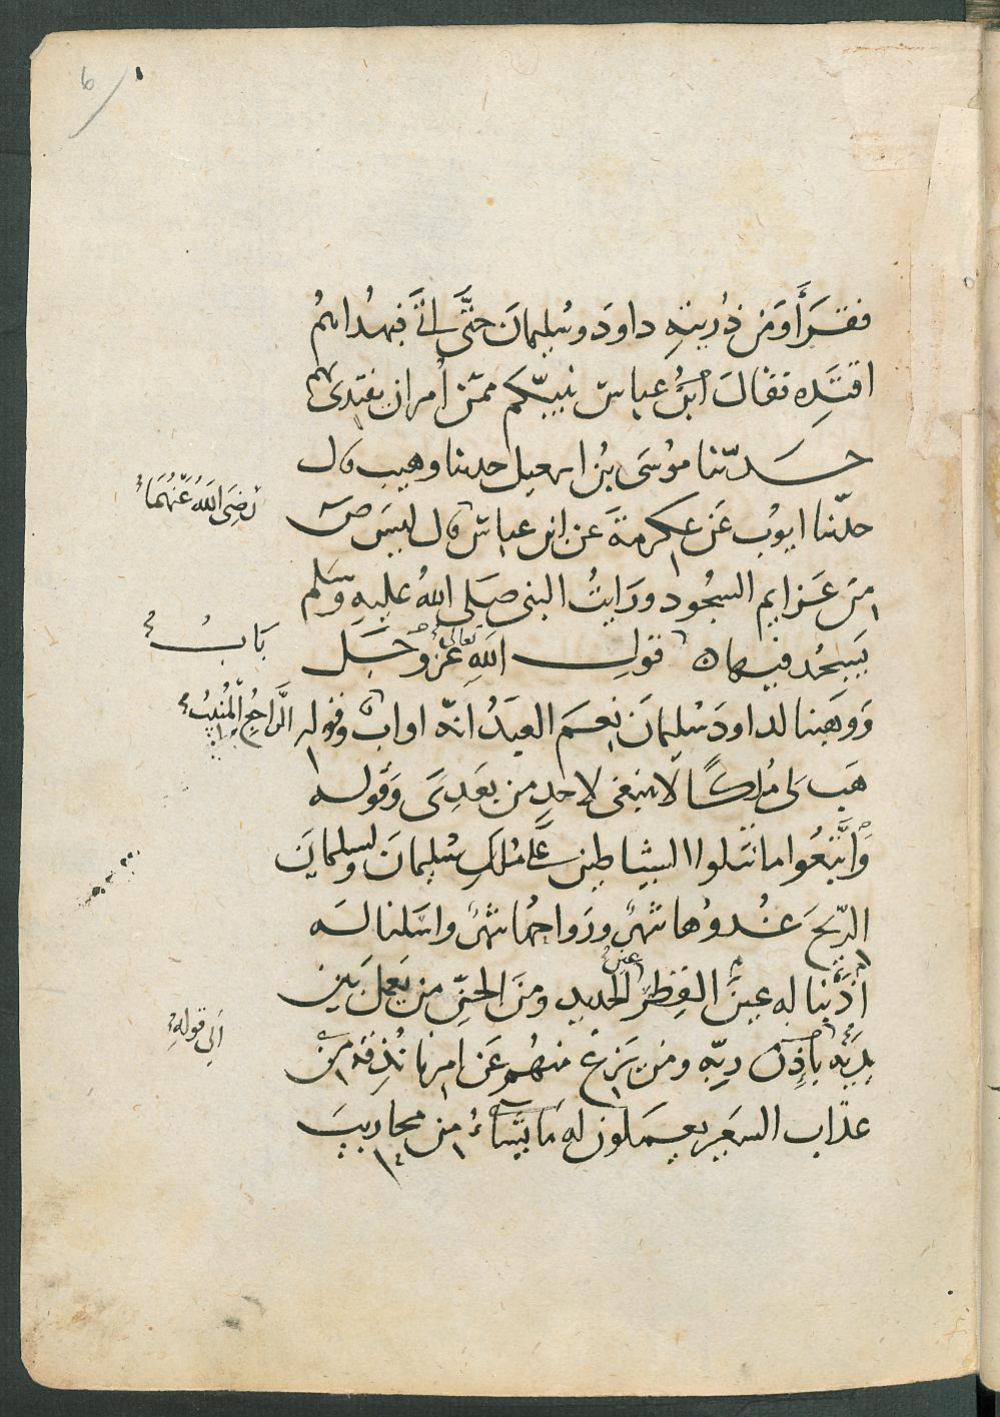 فقَرَأَ وَمن ذُرِيتهِ داودَ وسُليمانَ حتَّى اتَى فبهُداهُمُ
اقتَدِه فقالَ ابنُ عباسٍ نبيّكم ممّن اُمر ان يقتدى بهم
حَدّثنا موُسَى بنُ اسمعيل حدثنا وهيب قال
حدّثنا ايوُب عَن عِكرمةَ عَن ابن عباسٍ قال ليسَ صَ
رَضِىَ اللهُ عَنْهُمَا
من عَزايم السجُود ورَايتُ النبى صَلى اللهُ عليهِ وَسَلم
يَسجُد فيها ه قولِ اللهِ تعالى عَزّ وجَل
بَابُ
وَوهَبنا لداودَ سُليمَانَ نعمَ العبدُ انّه اواب وقوله
الرَّاجِعُ المُنِيبُ
هَب لى مُلكًا لا ينبغى لاحدٍ من بعَدِىَ وَقوله
وَاتَّبَعُوا ما تَتلوا الشياطين عَلى مُلكِ سُليمانَ ولسليمانَ
الرّيحَ غُدوُها شهرٌ ورَواحُها شهرٌ واسَلنا لَه
اَذَبْنا له عينَ القِطرِ عين الحديد ومنَ الجنِّ من يَعملُ بَين
يدَيْه بِاِذن ربّه ومَن يَزغ منهُم عَن امرنا نُذِقهُ من
اِلى قولِهِ
عذاب السَعير يعمَلون له مَا يَشاءُ من محاريبَ